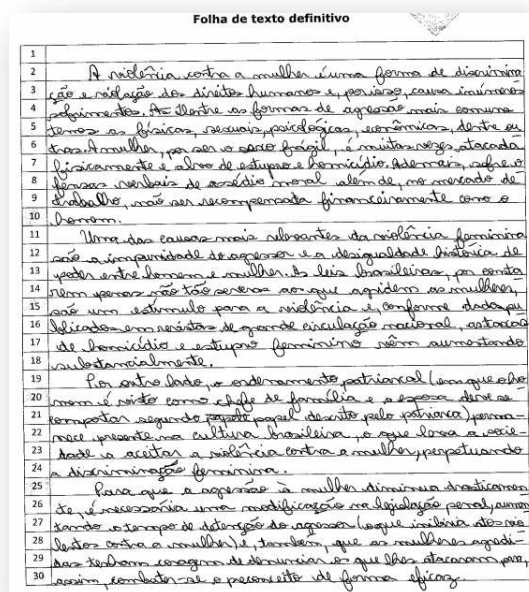 Folha de texto definitivo
1
2 A violência contra a mulher é uma forma de discrimina
3 ção e violação dos direitos humanos e, por isso, causa inúmeros
4 sofrimentos. Dentre as formas de agressão mais comuns
5 temos as físicas, sexuais, psicológicas, econômicas, dentre ou
6 tras. A mulher, por ser o sexo frágil, é muitas vezes, atacada
7 fisicamente e alvo de estupro e homicídio. Ademais, sofre o
8 fensas verbais de assédio moral além de, no mercado de
9 trabalho, não ser recompensada financeiramente como o
10 homem.
11 Uma das causas mais relevantes da violência feminina
12 são a impunidade do agressor e a desigualdade histórica de
13 poder entre homem e mulher. As leis brasileiras, por conta
14 rem penas não tão severas aos que agridem as mulheres,
15 são um estímulo para a violência e, conforme dados pu
16 blicados em revistas de grande circulação nacional, as taxas
17 de homicídio e estupro feminino vêm aumentando
18 substancialmente.
19 Por outro lado, o ordenamento patriarcal (em que o ho
20 mem é visto como chefe de família e a esposa deve se
21 comportar segundo papel descrito pelo patriarca), perma
22 nece presente na cultura brasileira, o que leva a socie-
23 dade a aceitar a violência contra a mulher, perpetuando
24 a discriminação feminina.
25 Para que a agressão à mulher diminua drasticamen
26 te, é necessária uma modificação na legislação penal, aumen
27 tando o tempo de detenção do agressor (o que inibiria atos vio
28 lentos contra a mulher) e, também, que as mulheres agredi-
29 das tenham coragem de denunciar os que lhes atacaram para,
30 assim, combater-se o preconceito de forma eficaz.